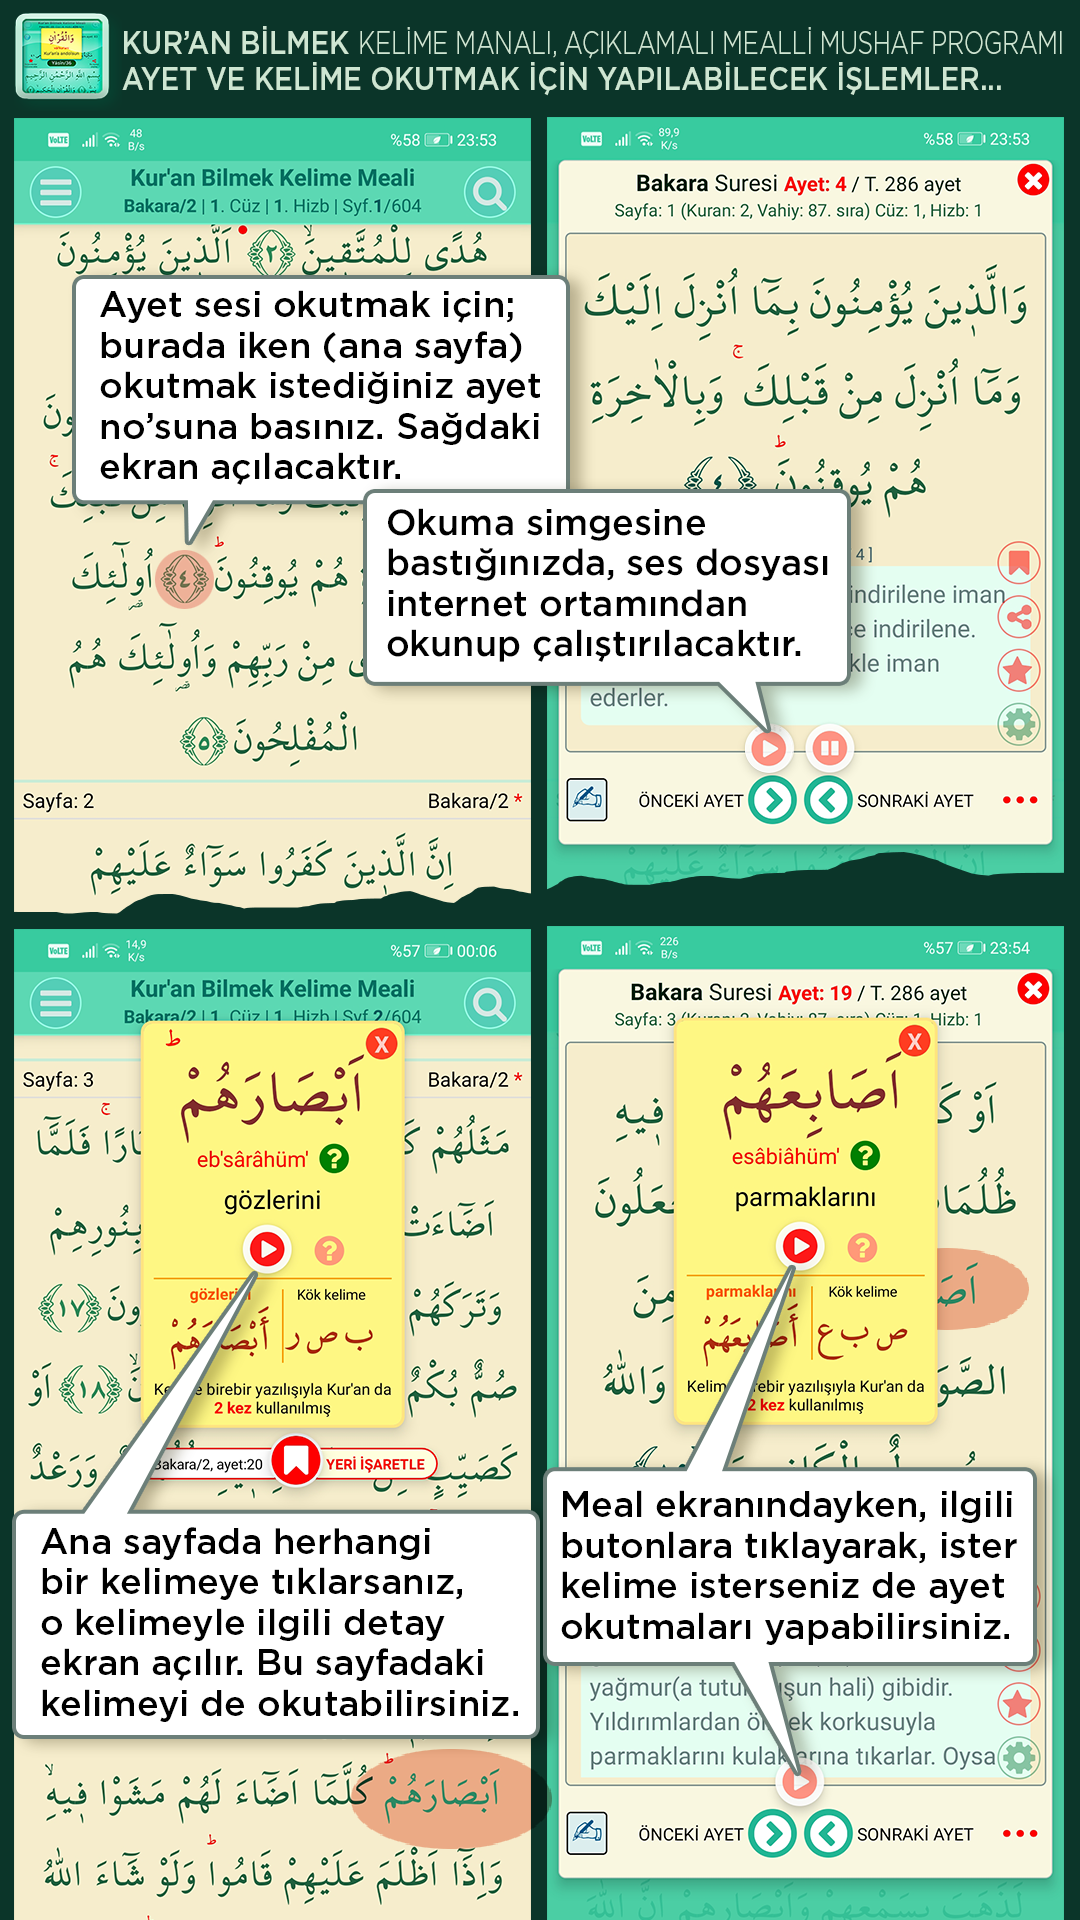 KUR'AN BİLMEK KELİME MANALI, AÇIKLAMALI MEALLİ MUSHAF PROGRAMI
AYET VE KELİME OKUTMAK İÇİN YAPILABİLECEK İŞLEMLER...
VoLTE 48 B/s %58 23:53
Kur'an Bilmek Kelime Meali
Bakara/2 | 1. Cüz | 1. Hizb | Syf.1/604
هُدًى لِلْمُتَّقِينَۙ ﴿٢﴾ اَلَّذِينَ يُؤْمِنُونَ
Ayet sesi okutmak için;
burada iken (ana sayfa)
okutmak istediğiniz ayet
no'suna basınız. Sağdaki
ekran açılacaktır.
هُمْ يُوقِنُونَۜ ﴿٤﴾ اُو۬لٰٓئِكَ
مِنْ رَبِّهِمْ وَاُو۬لٰٓئِكَ هُمُ
الْمُفْلِحُونَ ﴿٥﴾
Sayfa: 2 Bakara/2 *
اِنَّ الَّذِينَ كَفَرُوا سَوَٓاءٌ عَلَيْهِمْ
VoLTE 89,9 K/s %58 23:53
Bakara Suresi Ayet: 4 / T. 286 ayet
Sayfa: 1 (Kuran: 2, Vahiy: 87. sıra) Cüz: 1, Hizb: 1
وَالَّذِينَ يُؤْمِنُونَ بِمَٓا اُنْزِلَ اِلَيْكَ
وَمَٓا اُنْزِلَ مِنْ قَبْلِكَۚ وَبِالْاٰخِرَةِ
هُمْ يُوقِنُونَۜ ﴿٤﴾
Okuma simgesine
bastığınızda, ses dosyası
internet ortamından
okunup çalıştırılacaktır.
4 ]
indirilene iman
indirilene.
iman
ederler.
ÖNCEKİ AYET SONRAKİ AYET
VoLTE 14,9 K/s %57 00:06
Kur'an Bilmek Kelime Meali
Bakara/2 | 1. Cüz | 1. Hizb | Syf.2/604
Sayfa: 3 Bakara/2 *
مَثَلُهُمْ
فَلَمَّٓا
اَضَٓاءَتْ
بِنُورِهِمْ
وَتَرَكَهُمْ
﴿١٧﴾
صُمٌّ بُكْمٌ
﴿١٨﴾ اَوْ
كَصَيِّبٍ
وَرَعْدٌ
اَبْصَارَهُمْۜ
eb'sârâhüm' ?
gözlerini
?
gözlerini Kök kelime
أَبْصَارَهُمْ ب ص ر
Kelime birebir yazılışıyla Kur'an da
2 kez kullanılmış
Bakara/2, ayet:20 YERİ İŞARETLE
Ana sayfada herhangi
bir kelimeye tıklarsanız,
o kelimeyle ilgili detay
ekran açılır. Bu sayfadaki
kelimeyi de okutabilirsiniz.
اَبْصَارَهُمْۜ كُلَّمَٓا اَضَٓاءَ لَهُمْ مَشَوْا فِيهِۙ
وَاِذَٓا اَظْلَمَ عَلَيْهِمْ قَامُواۜ وَلَوْ شَٓاءَ اللّٰهُ
VoLTE 226 B/s %57 23:54
Bakara Suresi Ayet: 19 / T. 286 ayet
Sayfa: 3 (Kuran: 2, Vahiy: 87. sıra) Cüz: 1, Hizb: 1
فِيهِ
مِنَ
وَاللّٰهُ
اَصَابِعَهُمْ
esâbiâhüm' ?
parmaklarını
?
parmaklarını Kök kelime
أَصَابِعَهُمْ ص ب ع
Kelime birebir yazılışıyla Kur'an da
2 kez kullanılmış
Meal ekranındayken, ilgili
butonlara tıklayarak, ister
kelime isterseniz de ayet
okutmaları yapabilirsiniz.
yağmur(a tutulmuşun hali) gibidir.
Yıldırımlardan ölmek korkusuyla
parmaklarını kulaklarına tıkarlar. Oysa
ÖNCEKİ AYET SONRAKİ AYET